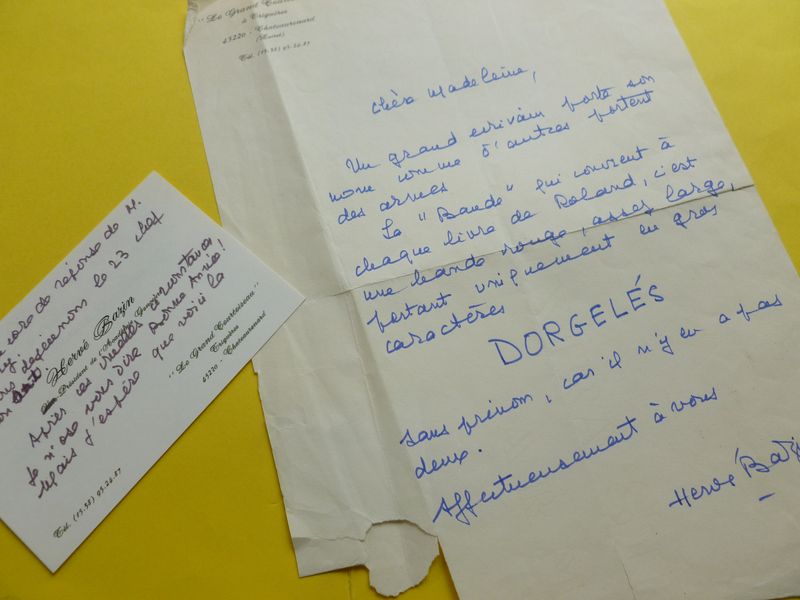 "Le Grand Courtoiseau"
à Triguères
45220 - Chateaurenard
(Loiret)
Tél. (15.38) 95.26.27
Chère Madeleine,
Un grand écrivain porte son
nom comme d'autres portent
des armes
La "Bande" qui convient à
chaque livre de Roland, c'est
une bande rouge, assez large,
portant uniquement en gros
caractères
DORGELÉS
sans prénom, car il n'y en a pas
deux.
Affectueusement à vous
Hervé Bazin
de réponse de M.
déjeunons le 23 chez
Hervé Bazin
Président de l'Académie Goncourt
Après ces
je n'ose vous dire Bonne Année!
Mais j'espère que voici la
"Le Grand Courtoiseau"
Triguères
45220 - Chateaurenard
Tél. (15.38) 95.26.27